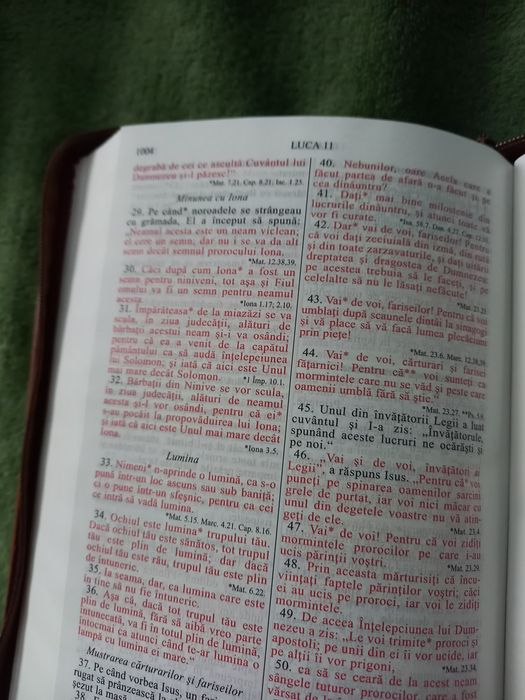 1004
LUCA 11
degrabă de cei ce ascultă Cuvântul lui
Dumnezeu şi-l păzesc!”
*Mat. 7.21. Cap. 8.21. Iac. 1.25.
Minunea cu Iona
29. Pe când* noroadele se strângeau
cu grămada, El a început să spună:
„Neamul acesta este un neam viclean;
ei cere un semn; dar nu i se va da alt
semn decât semnul prorocului Iona.
*Mat. 12.38,39.
30. Căci după cum Iona* a fost un
semn pentru niniveni, tot aşa şi Fiul
omului va fi un semn pentru neamul
acesta.
*Iona 1.17; 2.10.
31. Împărăteasa* de la miazăzi se va
scula, în ziua judecăţii, alături de
bărbaţii acestui neam şi-i va osândi;
pentru că ea a venit de la capătul
pământului ca să audă înţelepciunea
lui Solomon; şi iată că aici este Unul
mai mare decât Solomon.
*1 Împ. 10.1.
32. Bărbaţii din Ninive se vor scula,
în ziua judecăţii, alături de neamul
acesta şi-l vor osândi, pentru că ei*
s-au pocăit la propovăduirea lui Iona;
şi iată că aici este Unul mai mare decât
Iona.
*Iona 3.5.
Lumina
33. Nimeni* n-aprinde o lumină, ca s-o
pună într-un loc ascuns sau sub baniţă;
ci o pune într-un sfeşnic, pentru ca cei
ce intră să vadă lumina.
*Mat. 5.15. Marc. 4.21. Cap. 8.16.
34. Ochiul este lumina* trupului tău.
Dacă ochiul tău este sănătos, tot trupul
tău este plin de lumină; dar dacă
ochiul tău este rău, trupul tău este plin
de întuneric.
*Mat. 6.22.
35. Ia seama, dar, ca lumina care este
în tine să nu fie întuneric.
36. Aşa că, dacă tot trupul tău este
plin de lumină, fără să aibă vreo parte
întunecată, va fi în totul plin de lumină,
întocmai ca atunci când te-ar lumina o
lampă cu lumina ei mare.”
Mustrarea cărturarilor şi fariseilor
37. Pe când vorbea Isus, un
rugat să prânzească la
şezut la masă.
38.
40. Nebunilor, oare Acela care a
făcut partea de afară n-a făcut şi pe
cea dinăuntru?
41. Daţi* mai bine milostenie din
lucrurile dinăuntru, şi atunci toate vă
vor fi curate.
*Isa. 58.7. Dan. 4.27. Cap. 12.33.
42. Dar* vai de voi, fariseilor! Pentru
că voi daţi zeciuială din izmă, din rută
şi din toate zarzavaturile, şi daţi uitării
dreptatea şi dragostea de Dumnezeu:
pe acestea trebuia să le faceţi, şi pe
celelalte să nu le lăsaţi nefăcute!
*Mat. 23.23.
43. Vai* de voi, fariseilor! Pentru că voi
umblaţi după scaunele dintâi la sinagogi
şi vă place să vă facă lumea plecăciuni
prin pieţe!
*Mat. 23.6. Marc. 12.38,39.
44. Vai* de voi, cărturari şi farisei
făţarnici! Pentru că** voi sunteţi ca
mormintele care nu se văd şi peste care
oamenii umblă fără să ştie.”
*Mat. 23.27. **Ps. 5.9.
45. Unul din învăţătorii Legii a luat
cuvântul şi I-a zis: „Învăţătorule,
spunând aceste lucruri ne ocărăşti şi
pe noi.”
46. „Vai şi de voi, învăţători ai
Legii”, a răspuns Isus. „Pentru că* voi
puneţi pe spinarea oamenilor sarcini
grele de purtat, iar voi nici măcar cu
unul din degetele voastre nu vă atin-
geţi de ele.
*Mat. 23.4.
47. Vai* de voi! Pentru că voi zidiţi
mormintele prorocilor pe care i-au
ucis părinţii voştri.
*Mat. 23.29.
48. Prin aceasta mărturisiţi că încu-
viinţaţi faptele părinţilor voştri; căci
ei au ucis pe proroci, iar voi le zidiţi
mormintele.
49. De aceea Înţelepciunea lui Dum-
nezeu a zis: „Le voi trimite* proroci şi
apostoli; pe unii din ei îi vor ucide, iar
pe alţii îi vor prigoni,
*Mat. 23.34.
50. ca să se ceară de la acest neam
sângele tuturor prorocilor, care a fost
vărsat de la